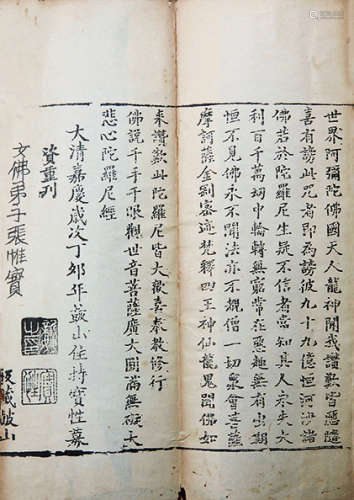 世界阿彌陀佛國天人龍神聞我讚歎皆慈隨
喜有謗此咒者即為謗彼九十九億恒河沙諸
佛若於陀羅尼生疑不信者當知其人永失大
利百千萬劫中輪轉無窮常在惡趣無有出期
恒不見佛永不聞法亦不覩僧一切眾會菩薩
摩訶薩金剛密迹梵釋四王神仙龍鬼聞佛如
来讚歎此陀羅尼皆大歡喜奉教修行
佛說千手千眼觀世音菩薩廣大圓滿無礙大
悲心陀羅尼經
大清嘉慶歲次丁卯年皷山住持實性募
資重刊
文佛弟子張惟寶
板藏皷山